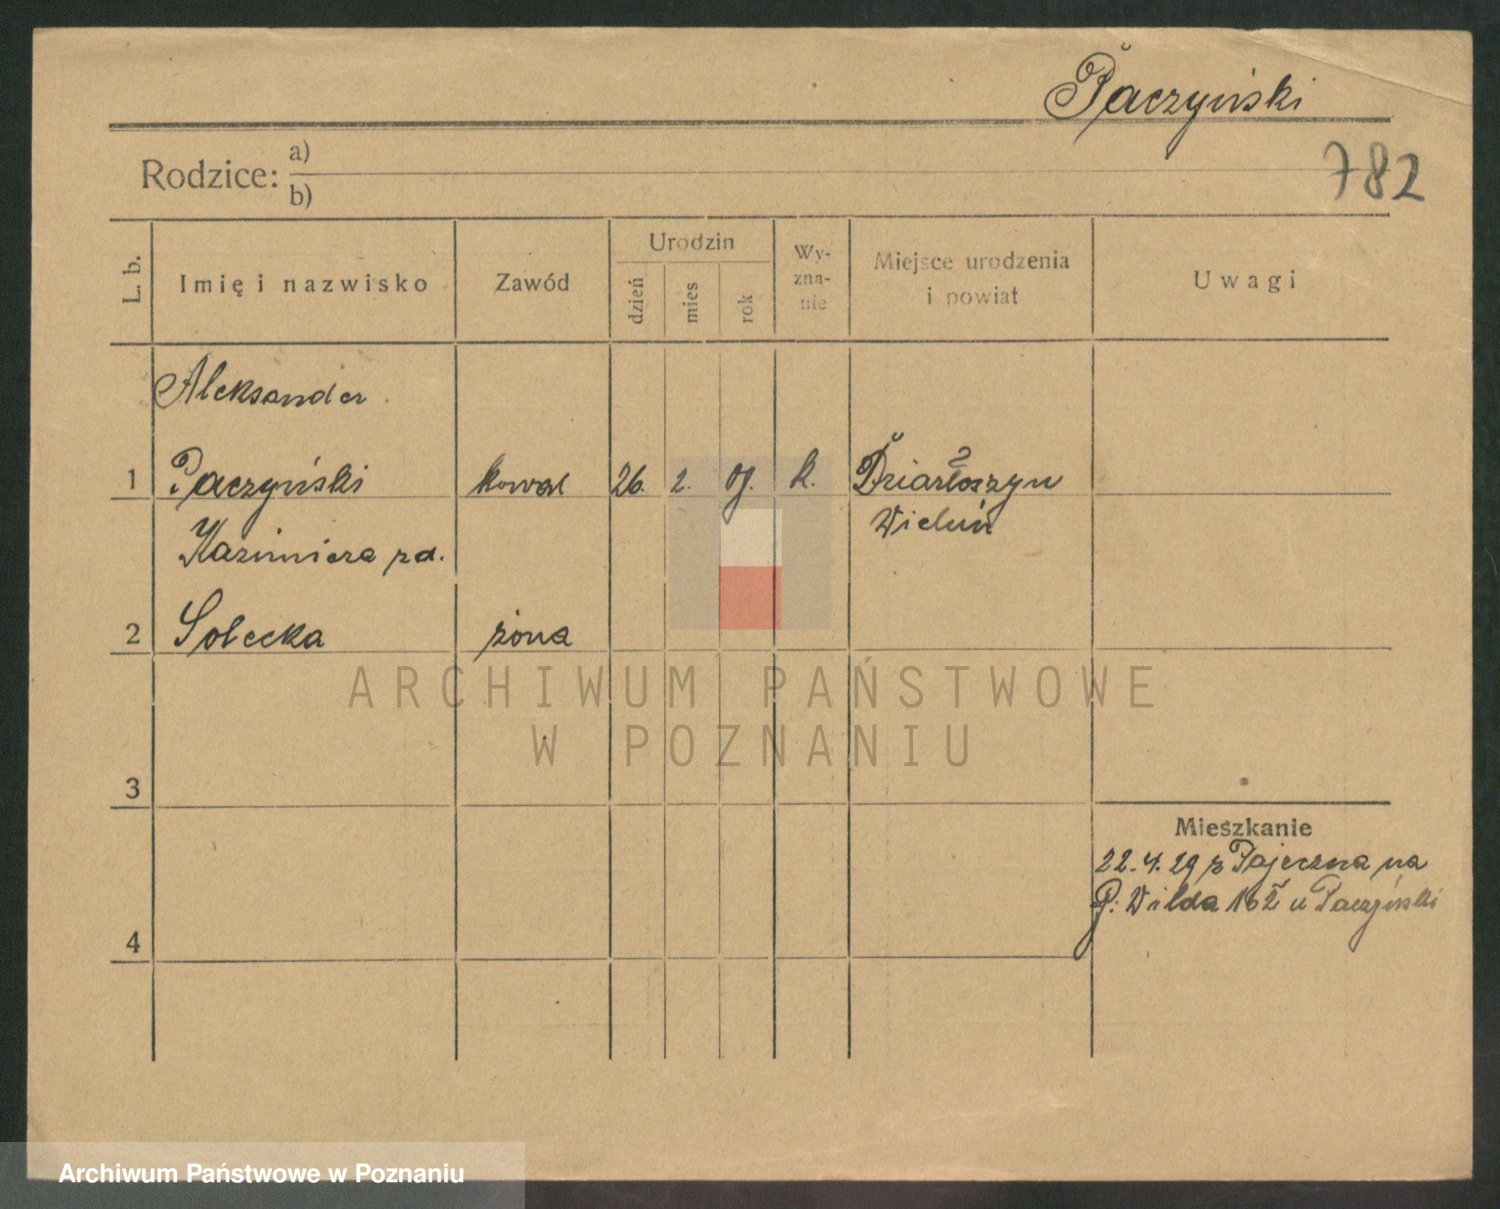 Paczyński
782
Rodzice: a)
b)
L. b.
Imię i nazwisko
Zawód
Urodzin
dzień
mies
rok
Wy-
zna-
nie
Miejsce urodzenia
i powiat
Uwagi
Aleksander
1 Paczyński kowal 26. 2. k. Działoszyn
Wieluń
Kazimiera zd.
2 Solecka żona
3
4
Mieszkanie
22.4.29 z Pajęczna na
G: Wilda 16 u Paczyński
ARCHIWUM PAŃSTWOWE
W POZNANIU
Archiwum Państwowe w Poznaniu